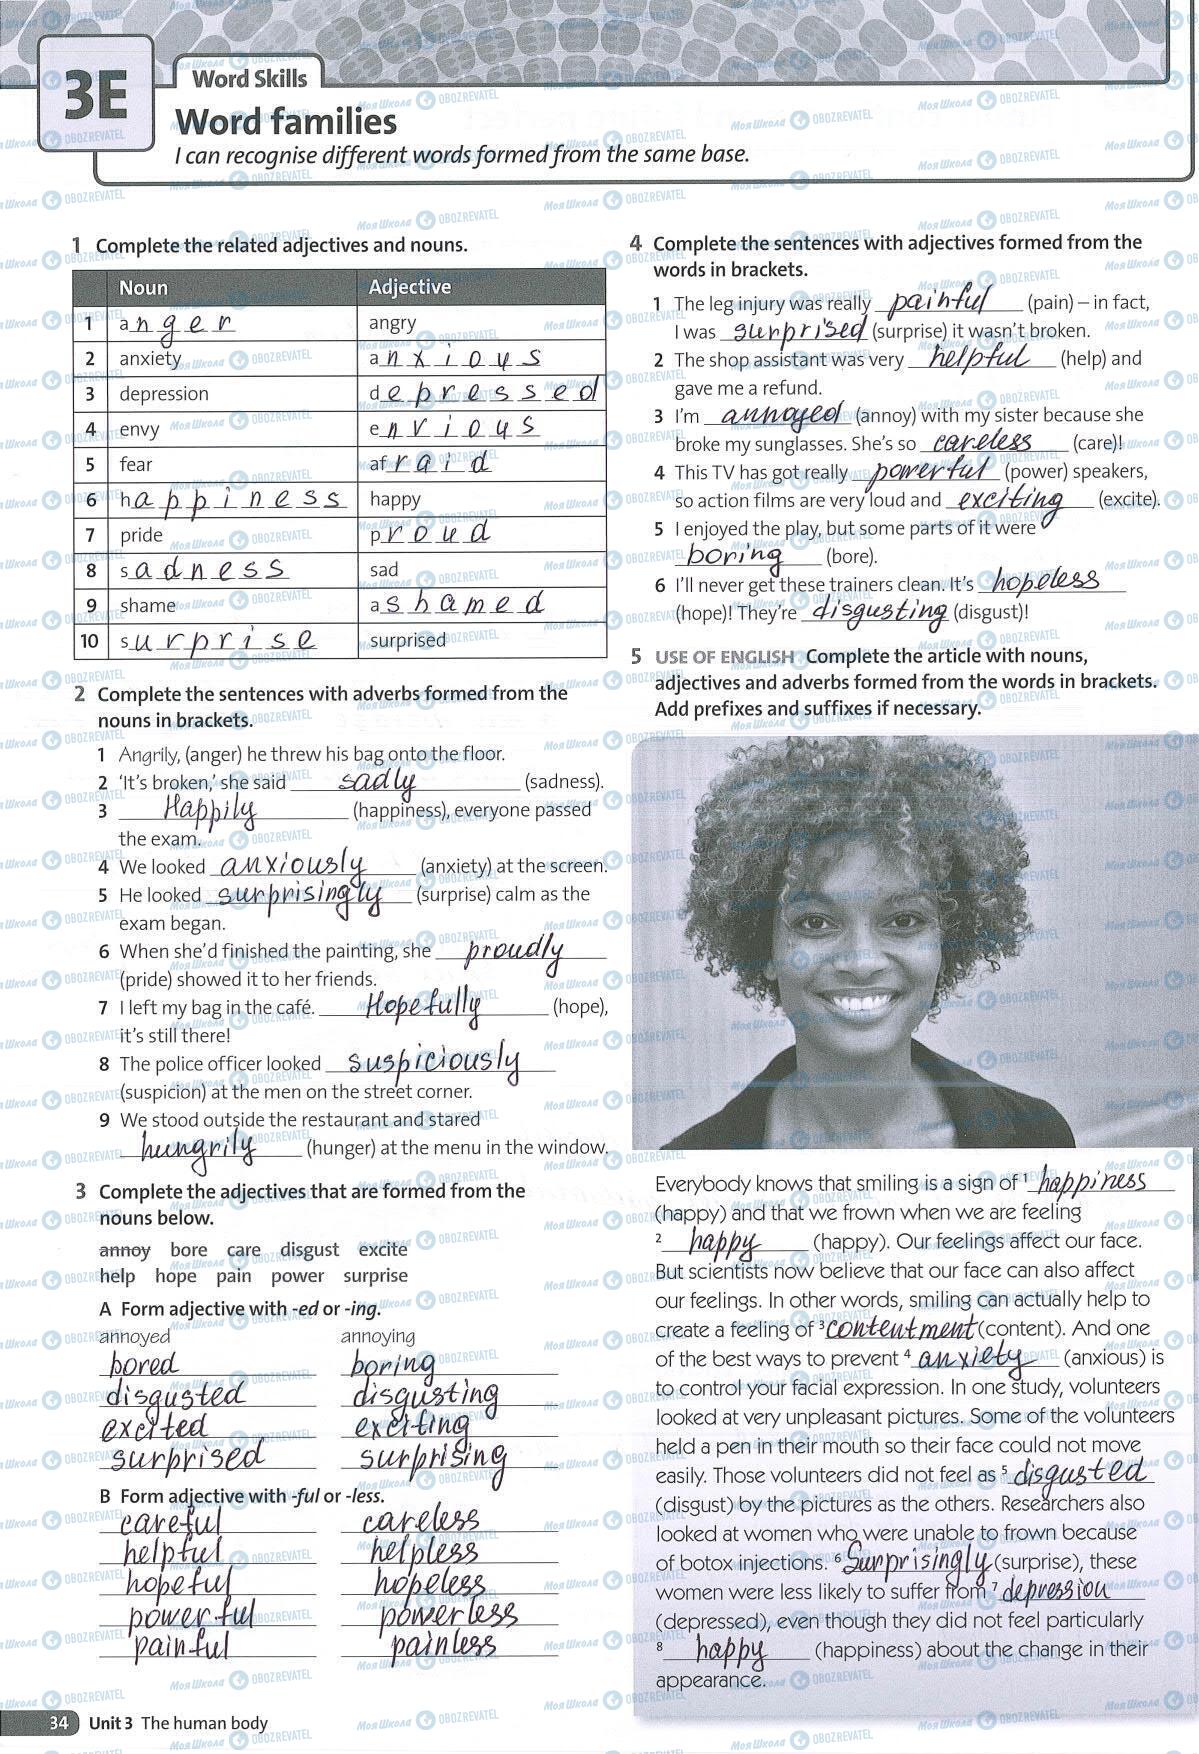 3E
Word Skills
Word families
I can recognise different words formed from the same base.
1 Complete the related adjectives and nouns.
Noun Adjective
1 anger angry
2 anxiety anxious
3 depression depressed
4 envy envious
5 fear afraid
6 happiness happy
7 pride proud
8 sadness sad
9 shame ashamed
10 surprise surprised
2 Complete the sentences with adverbs formed from the
nouns in brackets.
1 Angrily, (anger) he threw his bag onto the floor.
2 'It's broken,' she said sadly (sadness).
3 Happily (happiness), everyone passed
the exam.
4 We looked anxiously (anxiety) at the screen.
5 He looked surprisingly (surprise) calm as the
exam began.
6 When she'd finished the painting, she proudly
(pride) showed it to her friends.
7 I left my bag in the café. Hopefully (hope),
it's still there!
8 The police officer looked suspiciously
(suspicion) at the men on the street corner.
9 We stood outside the restaurant and stared
hungrily (hunger) at the menu in the window.
3 Complete the adjectives that are formed from the
nouns below.
annoy bore care disgust excite
help hope pain power surprise
A Form adjective with -ed or -ing.
annoyed annoying
bored boring
disgusted disgusting
excited exciting
surprised surprising
B Form adjective with -ful or -less.
careful careless
helpful helpless
hopeful hopeless
powerful powerless
painful painless
4 Complete the sentences with adjectives formed from the
words in brackets.
1 The leg injury was really painful (pain) – in fact,
I was surprised (surprise) it wasn't broken.
2 The shop assistant was very helpful (help) and
gave me a refund.
3 I'm annoyed (annoy) with my sister because she
broke my sunglasses. She's so careless (care)!
4 This TV has got really powerful (power) speakers,
so action films are very loud and exciting (excite).
5 I enjoyed the play, but some parts of it were
boring (bore).
6 I'll never get these trainers clean. It's hopeless
(hope)! They're disgusting (disgust)!
5 USE OF ENGLISH Complete the article with nouns,
adjectives and adverbs formed from the words in brackets.
Add prefixes and suffixes if necessary.
Everybody knows that smiling is a sign of 1 happiness
(happy) and that we frown when we are feeling
2 happy (happy). Our feelings affect our face.
But scientists now believe that our face can also affect
our feelings. In other words, smiling can actually help to
create a feeling of 3 contentment (content). And one
of the best ways to prevent 4 anxiety (anxious) is
to control your facial expression. In one study, volunteers
looked at very unpleasant pictures. Some of the volunteers
held a pen in their mouth so their face could not move
easily. Those volunteers did not feel as 5 disgusted
(disgust) by the pictures as the others. Researchers also
looked at women who were unable to frown because
of botox injections. 6 Surprisingly (surprise), these
women were less likely to suffer from 7 depression
(depressed), even though they did not feel particularly
8 happy (happiness) about the change in their
appearance.
34 Unit 3 The human body
Моя Школа OBOZREVATEL